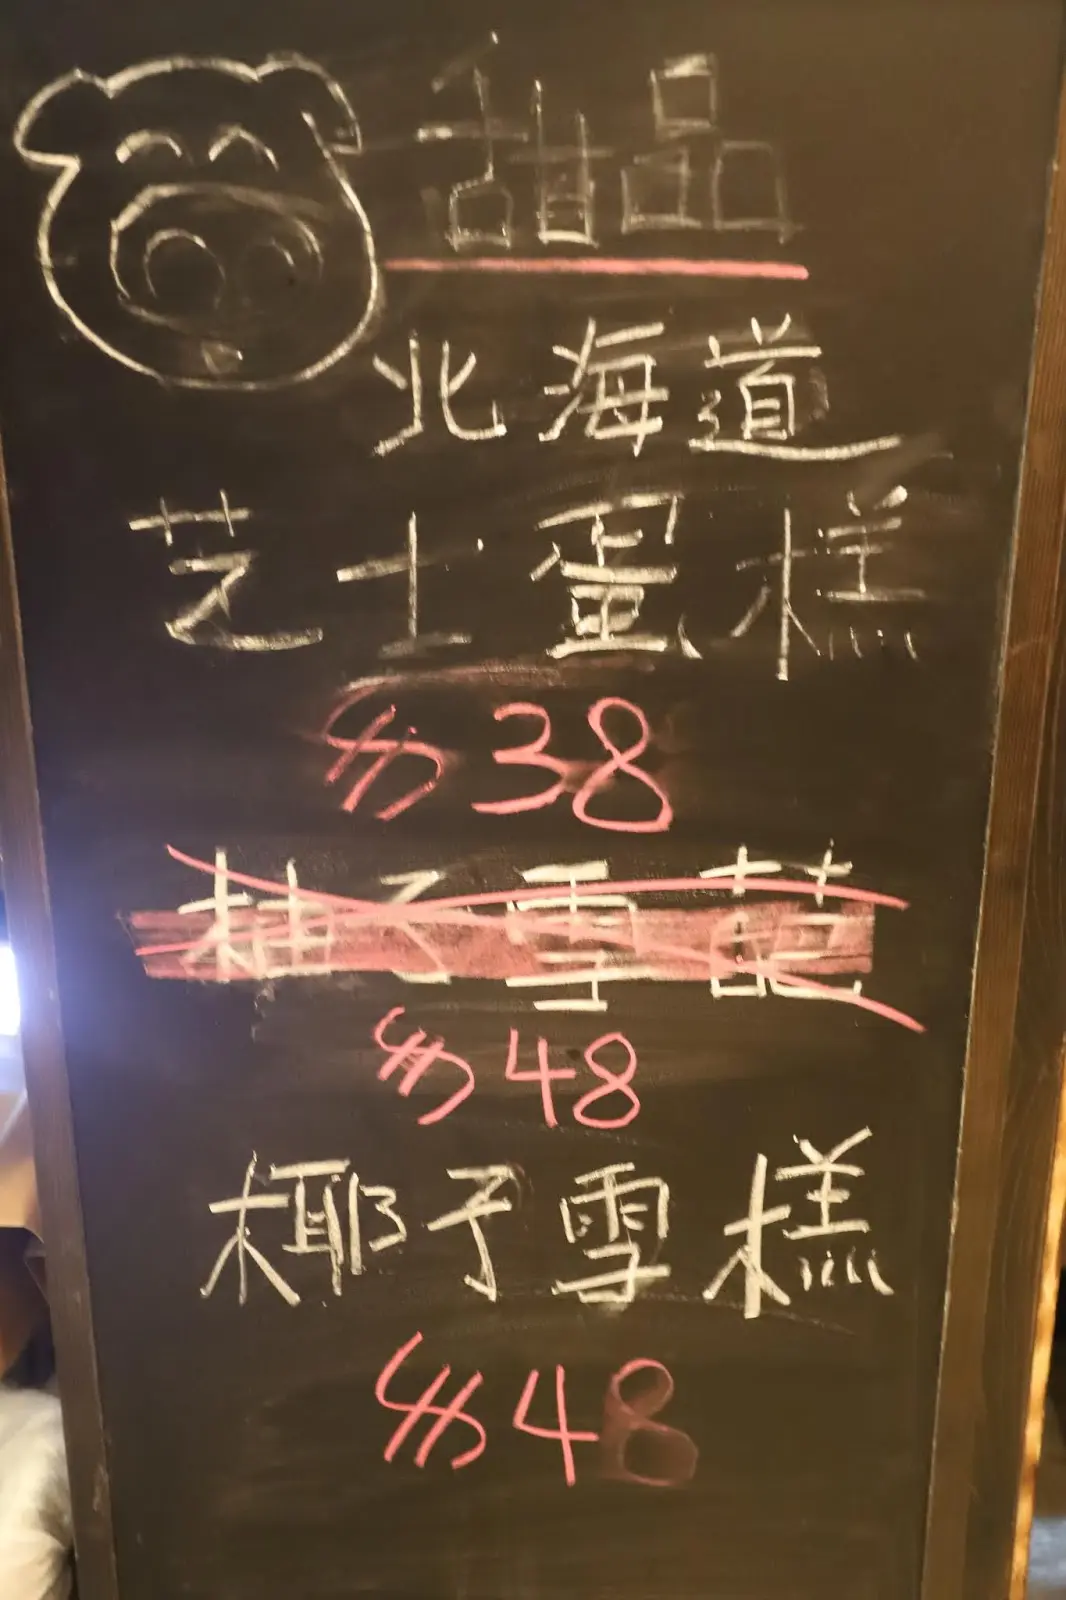 甜品
北海道
芝士蛋糕
$38
柚子雪葩
$48
椰子雪糕
$48